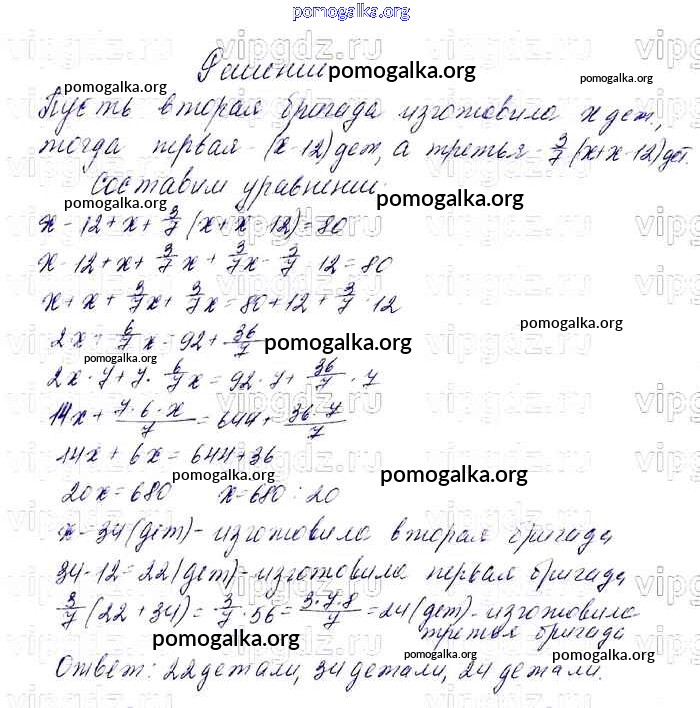 pomogalka.org
Решение pomogalka.org
pomogalka.org pomogalka.org
Пусть вторая бригада изготовила x дет.,
тогда первая - (x-12) дет, а третья - 3/7 (x+x-12) дет.
pomogalka.org
составим уравнение:
x - 12 + x + 3/7 (x + x - 12) = 80
x - 12 + x + 3/7 x + 3/7 x - 3/7 · 12 = 80
x + x + 3/7 x + 3/7 x = 80 + 12 + 3/7 · 12
pomogalka.org
2x + 6/7 x = 92 + 36/7 pomogalka.org
pomogalka.org
2x · 7 + 7 · 6/7 x = 92 · 7 + 36/7 · 7
14x + 7·6·x/7 = 644 + 36·7/7
14x + 6x = 644 + 36
pomogalka.org pomogalka.org
20x = 680 x = 680 : 20
x = 34 (дет) - изготовила вторая бригада
34 - 12 = 22 (дет) - изготовила первая бригада
3/7 (22 + 34) = 3/7 · 56 = 3·7·8/7 = 24 (дет) - изготовила
третья бригада
pomogalka.org pomogalka.org
Ответ: 22 детали, 34 детали, 24 детали.
pomogalka.org
vipgdz.ru